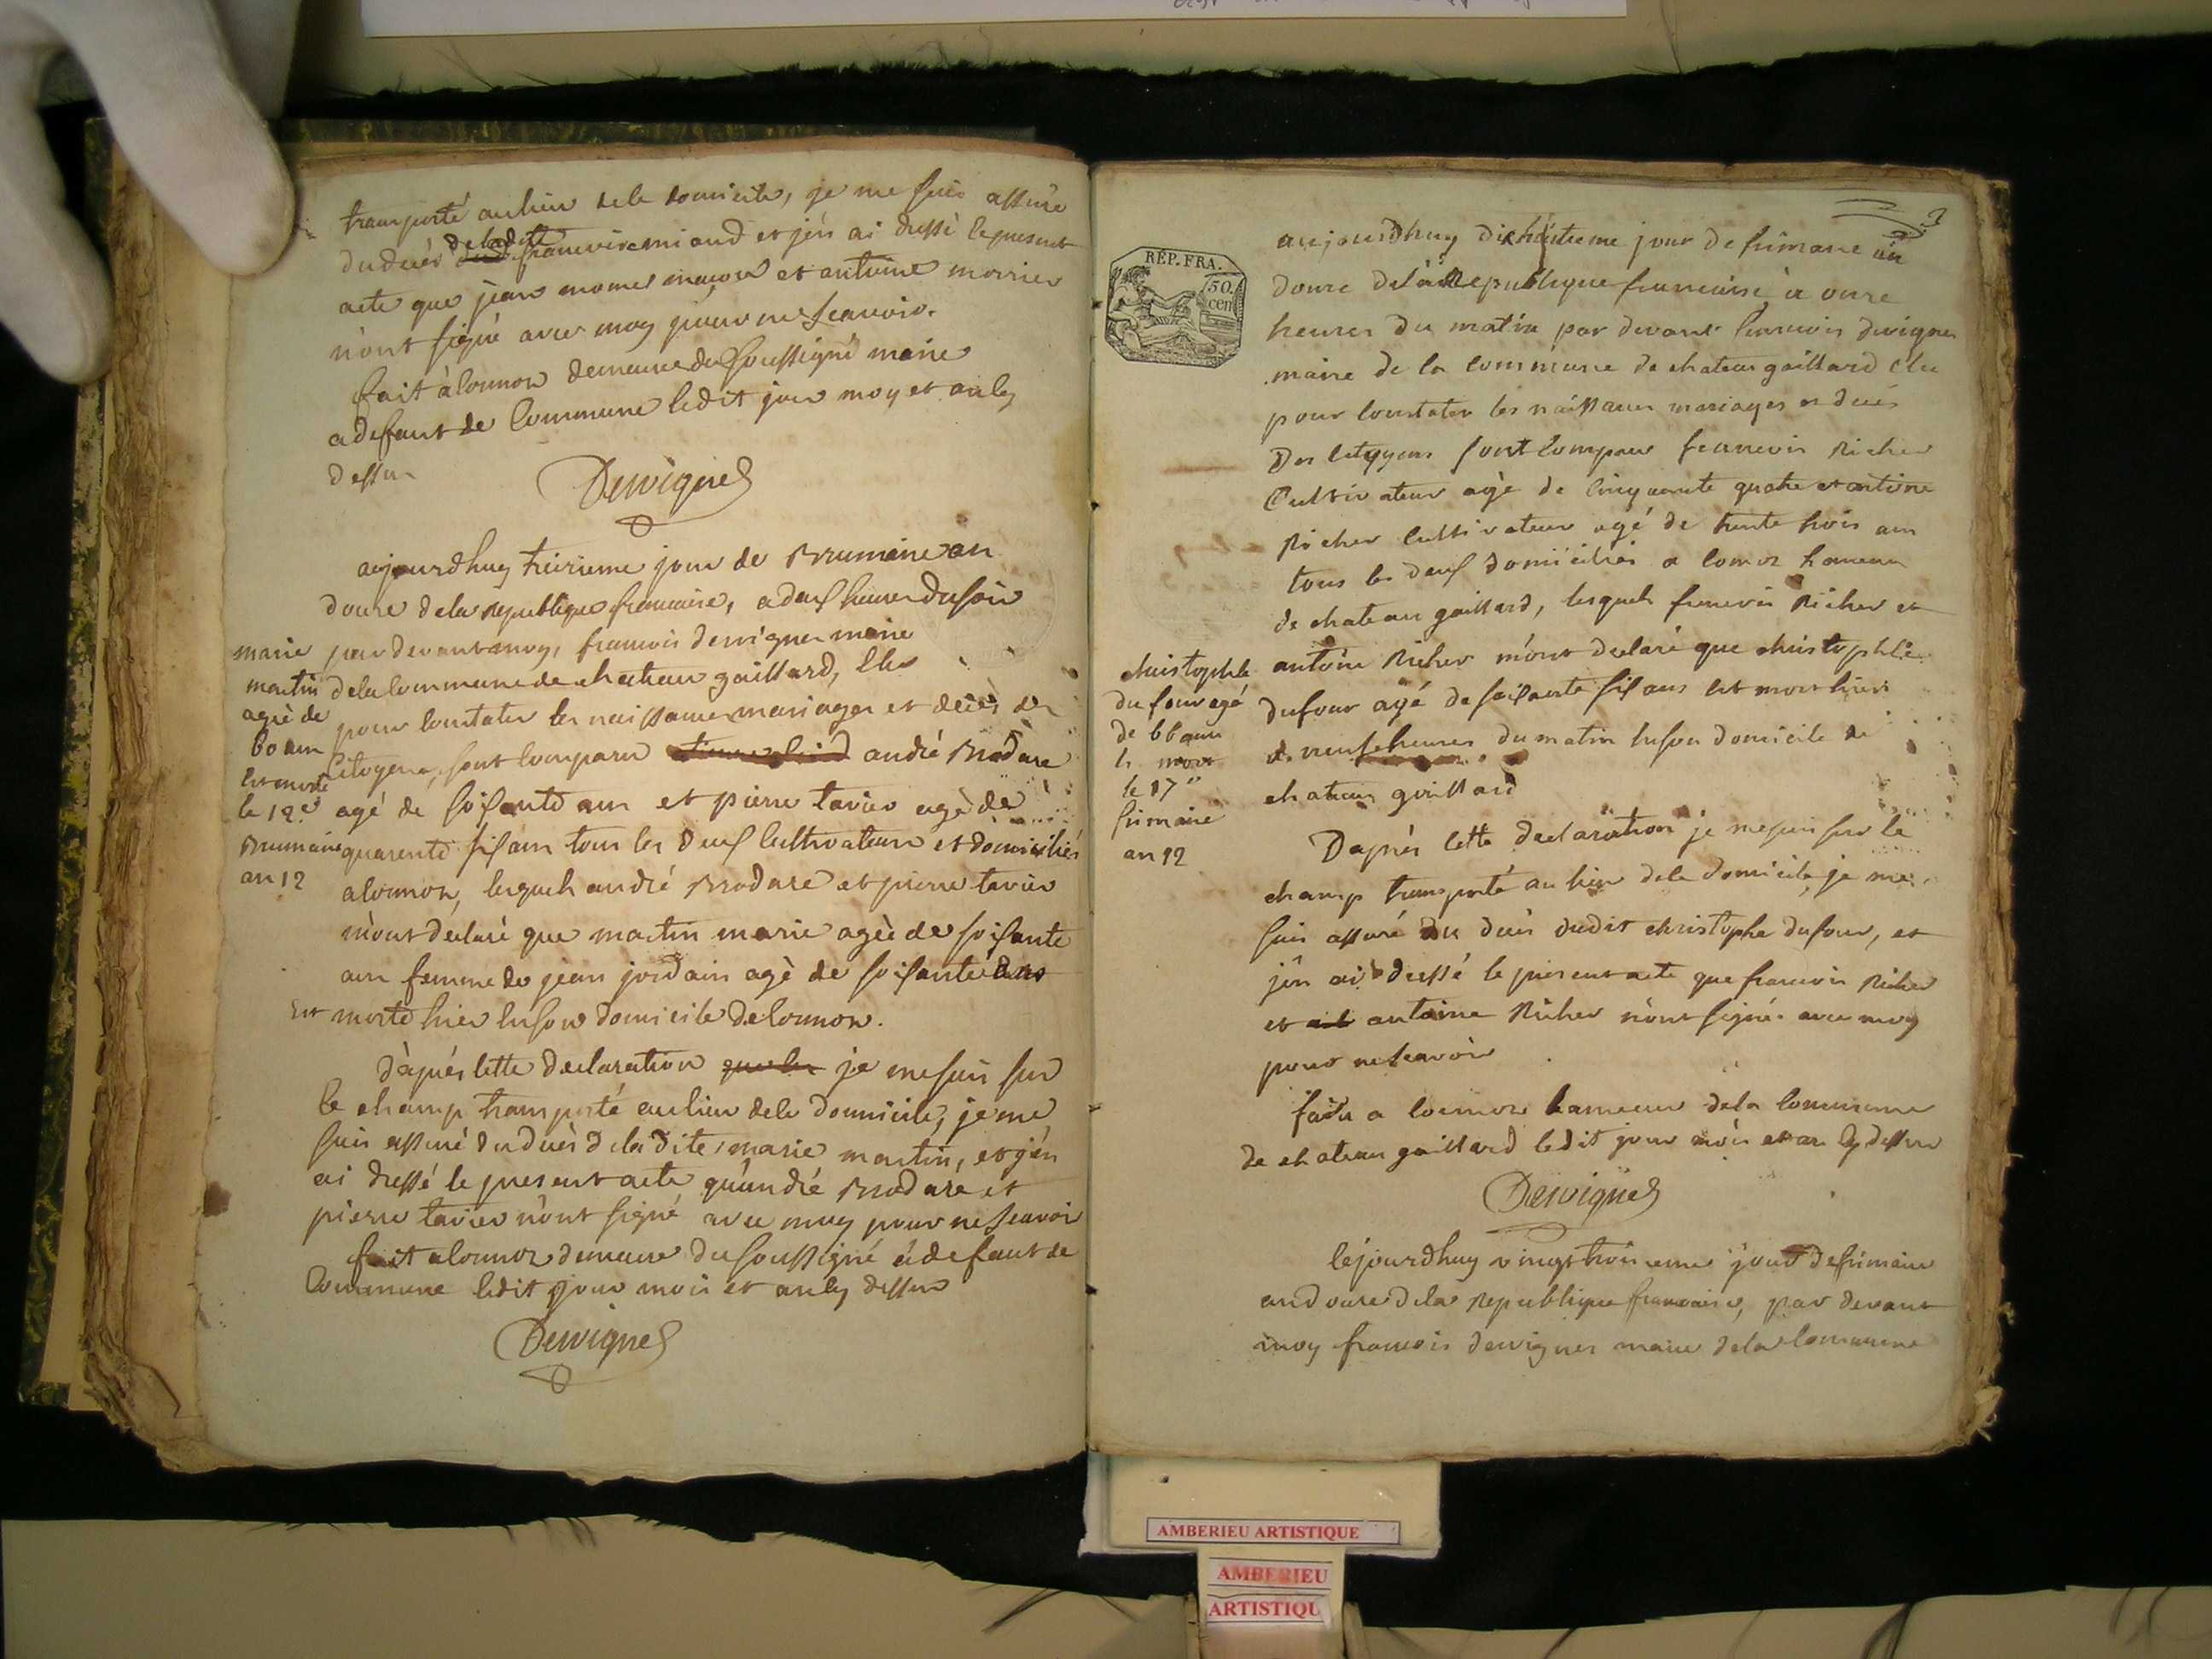 transporté au lieu de le domicile, je me suis assuré
du décès de ladite francoise miand et jén ai dressé le present
acte que jean momet maçon et antoine morrier
n'ont signé avec moy pour ne scavoir.
fait à lonnon demeure du soussigné maire
a defaut de commune ledit jour moy et an cy
dessus
Dervignes
aujourdhuy treizieme jour de Brumaire an
douze de la republique francaise, a deux heures du soir
par devant moy, francois dervignes maire
de la commune de chateau gaillard, elu
pour constater les naissances mariages et décès des
citoyens, sont comparu andré Brodare
agé de soixante ans et pierre tavier agé de
quarente six ans tous les deux cultivateurs et domiciliés
a lonnon, lesquels andré Brodare et pierre tavier
m'ont declaré que martin marie agée de soixante
ans femme de jean jordain agé de soixante ans
est morte hier en son domicile de lonnon.
marie
martin
agée de
60 ans
est morte
le 12e
Brumaire
an 12
d'après cette declaration que les je me suis sur
le champ transporté au lieu de le domicile, je me
suis assuré du décès de la dite marie martin, et j'en
ai dressé le present acte qu'andré Brodare et
pierre tavier n'ont signé avec moy pour ne scavoir
fait a lonnon demeure du soussigné à defaut de
commune ledit jour mois et an cy dessus
Dervignes
3
RÉP. FRA.
50.
cen
aujourdhuy dixhuitieme jour de frimaire an
douze de la Republique francaise à onze
heures du matin par devant francois dervignes
maire de la commune de chateau gaillard elu
pour constater les naissances mariages et décès
Des citoyens sont comparu francois Richer
Cultivateur agé de cinquante quatre et antoine
Richer cultivateur agé de trente trois ans
tous les deux domiciliés a lomon hameau
de chateau gaillard, lesquels francois Richer et
antoine Richer m'ont declaré que christophle
dufour agé de soixante six ans est mort hier
à neuf heures du matin en son domicile de
chateau gaillard
christophle
dufour agé
de 66 ans
est mort
le 17"
frimaire
an 12
Dapres cette declaration je me suis sur le
champ transporté au lieu de le domicile, je me
suis assuré du décès dudit christophe dufour, et
j'en ai dressé le present acte que francois Richer
et antoine Richer n'ont signés avec moy
pour ne scavoir
fait a lonnon hameau de la commune
de chateau gaillard ledit jour mois et an cy dessus
Dervignes
cejourdhuy vingt troisieme jour de frimaire
an douze de la Republique francaise, par devant
moy francois dervignes maire de la commune
AMBERIEU ARTISTIQUE
AMBERIEU
ARTISTIQU